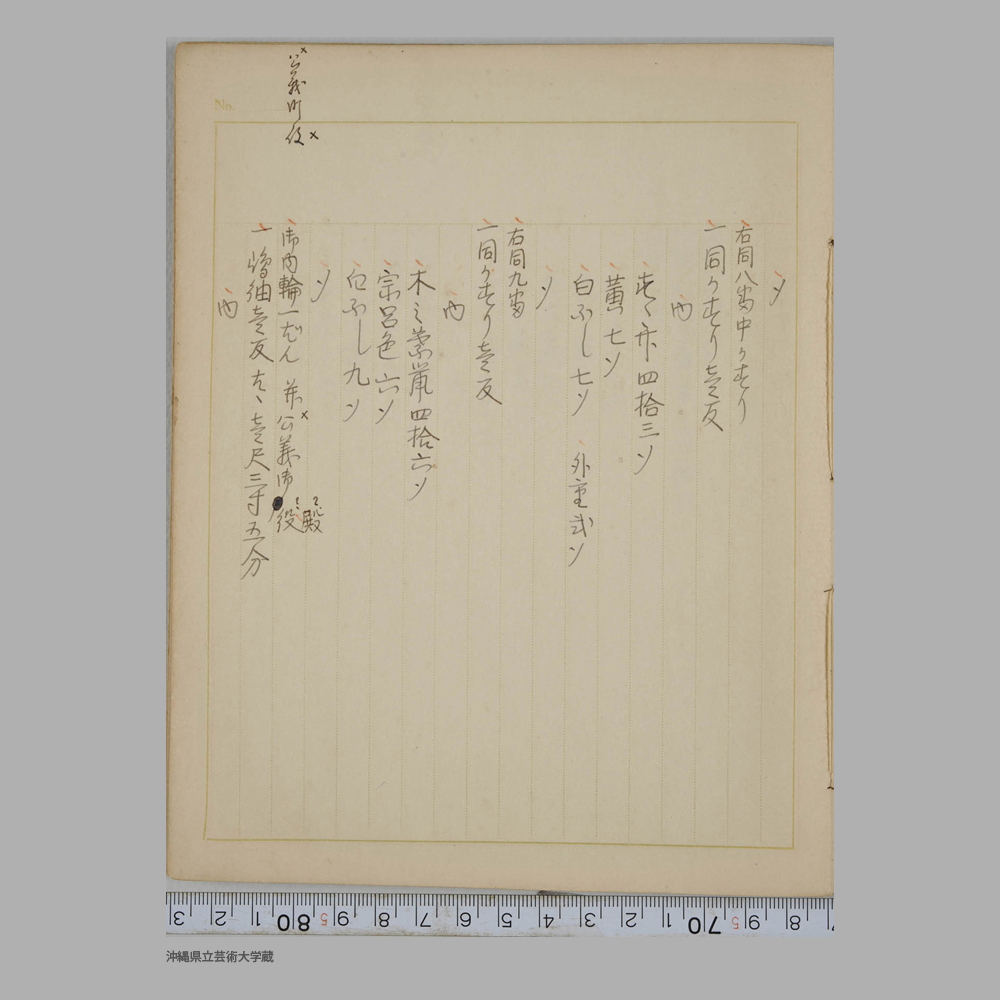 ソ
右同八番中かすり
一同かすり壱反
内
四拾三ソ
黄七ソ
白ふし七ソ 外ニ弐ソ
ソ
右同九番
一同かすり壱反
内
木之葉 四拾六ソ
宗呂色六ソ
白ふし九ソ
ソ
御内輪 公義御役
殿
一嶋紬壱反 壱尺三寸五分
内
公義町役
No.
3 2 1 80 9 8 7 6 5 4 3 2 1 70 9 8 7
沖縄県立芸術大学蔵